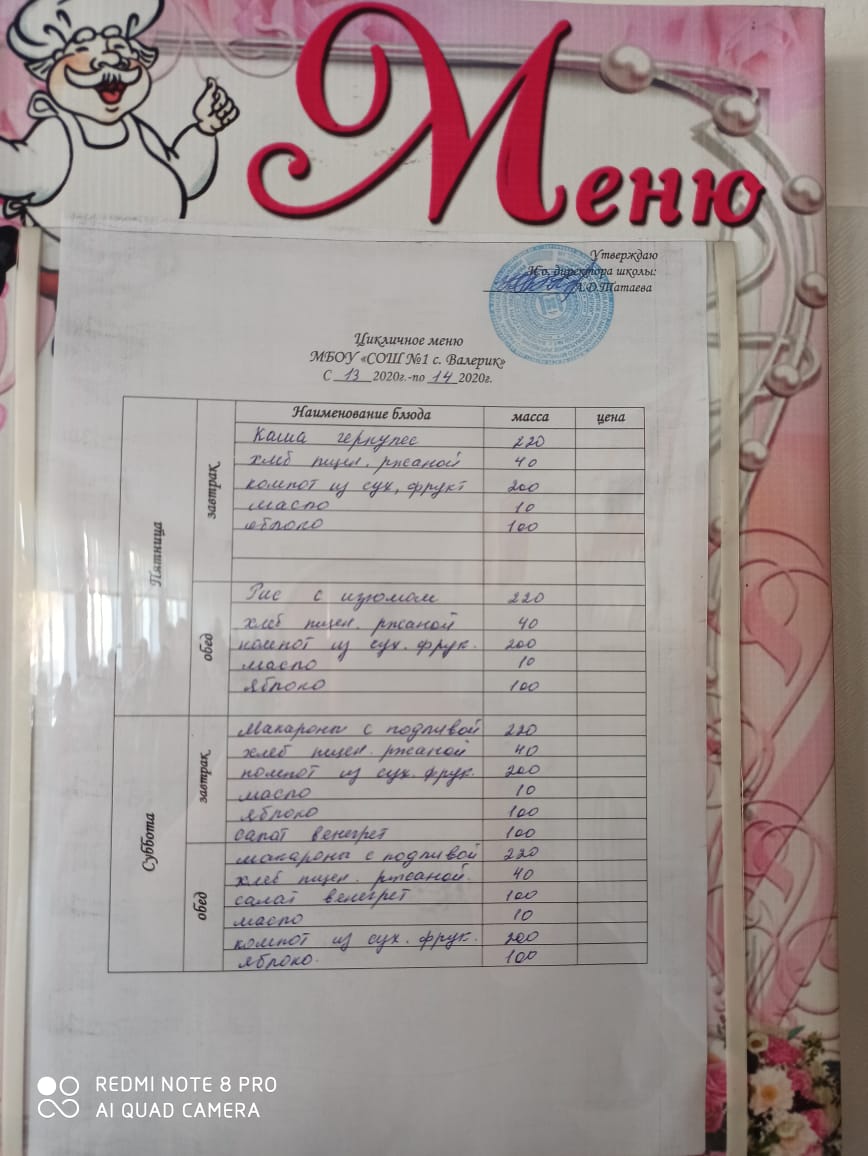 Меню
Утверждаю
И.о. директора школы:
А.Д.Татаева
Цикличное меню
МБОУ «СОШ №1 с. Валерик»
С 13 2020г.-по 14 2020г.
Наименование блюда масса цена
Пятница
завтрак
Каша геркулес 220
хлеб пшен. ржаной 40
компот из сух, фрукт 200
масло 10
яблоко 100
обед
Рис с изюмом 220
хлеб пшен. ржаной 40
компот из сух. фрук. 200
масло 10
яблоко 100
Суббота
завтрак
Макароны с подливой 220
хлеб пшен. ржаной 40
компот из сух. фрук. 200
масло 10
яблоко 100
салат венегрет 100
обед
макароны с подливой 220
хлеб пшен. ржаной. 40
салат венегрет 100
масло 10
компот из сух. фрук. 200
яблоко. 100
REDMI NOTE 8 PRO
AI QUAD CAMERA